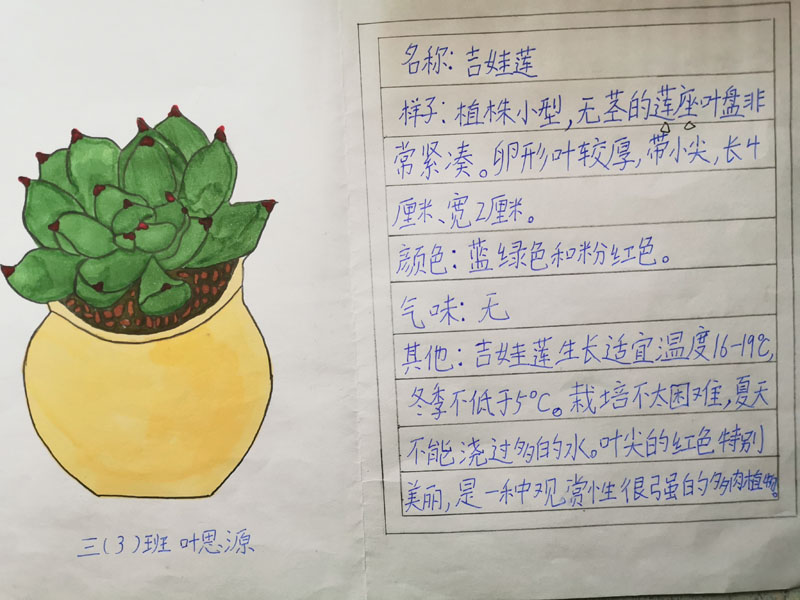 名称：吉娃莲
样子：植株小型，无茎的莲座叶盘非
常紧凑。卵形叶较厚，带小尖，长4
厘米、宽2厘米。
颜色：蓝绿色和粉红色。
气味：无
其他：吉娃莲生长适宜温度16-19℃，
冬季不低于5°C。栽培不太困难，夏天
不能浇过多的水。叶尖的红色特别
美丽，是一种观赏性很强的多肉植物。
三（3）班 叶思源